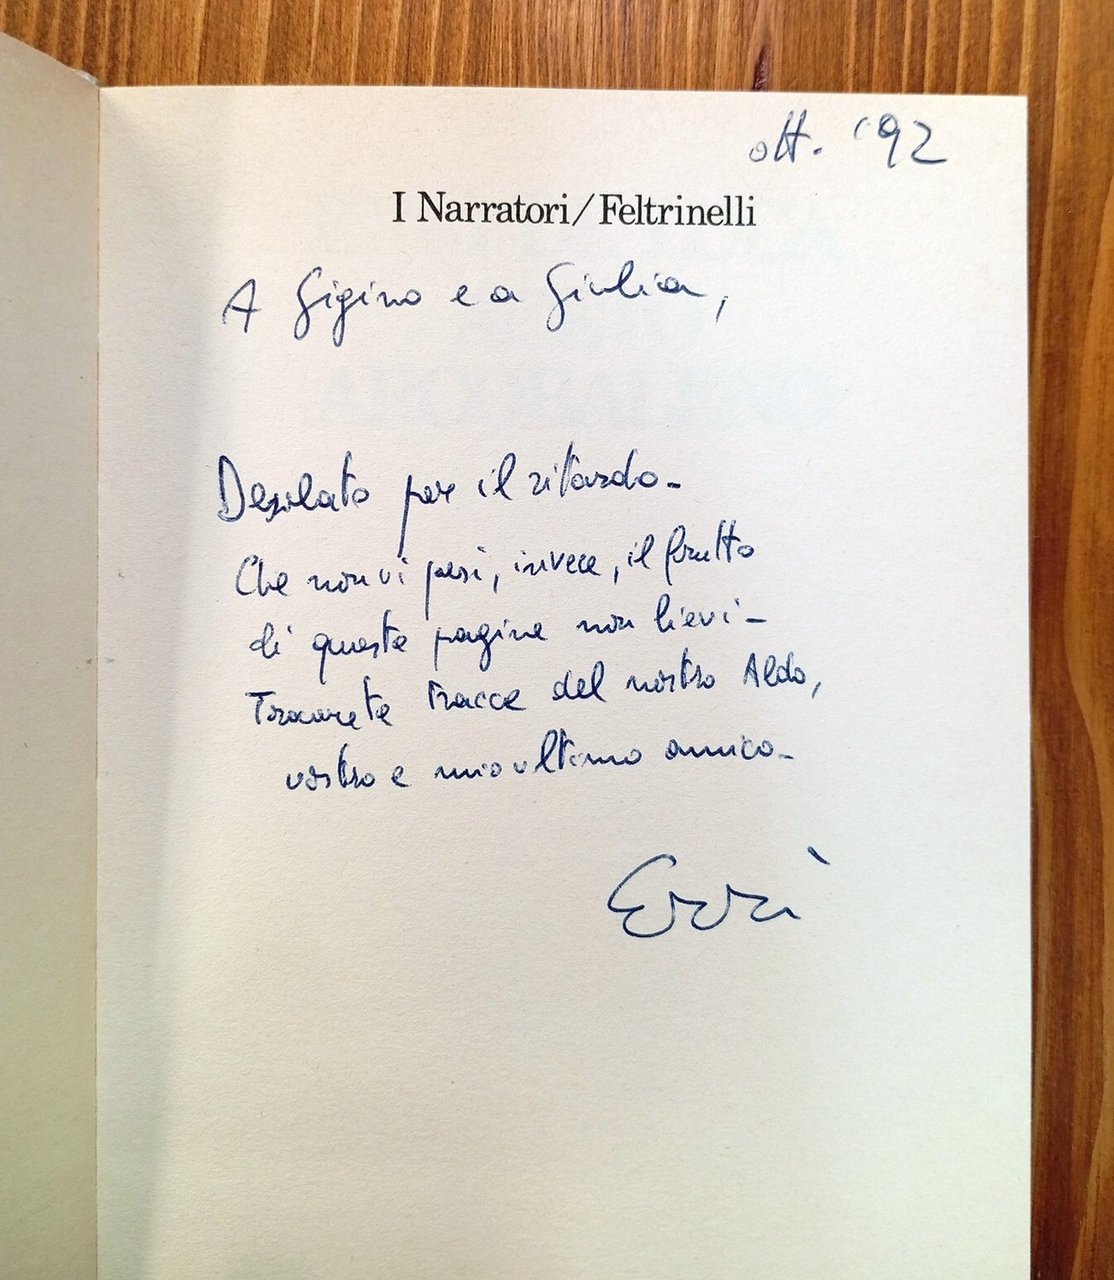 ott. '92
I Narratori/Feltrinelli
A Gigino e a Giulia,
Desolato per il ritardo-
Che non vi pesi, invece, il frutto
di queste pagine non lievi-
Troverete tracce del nostro Aldo,
vostro e mio ultimo amico-
Erri